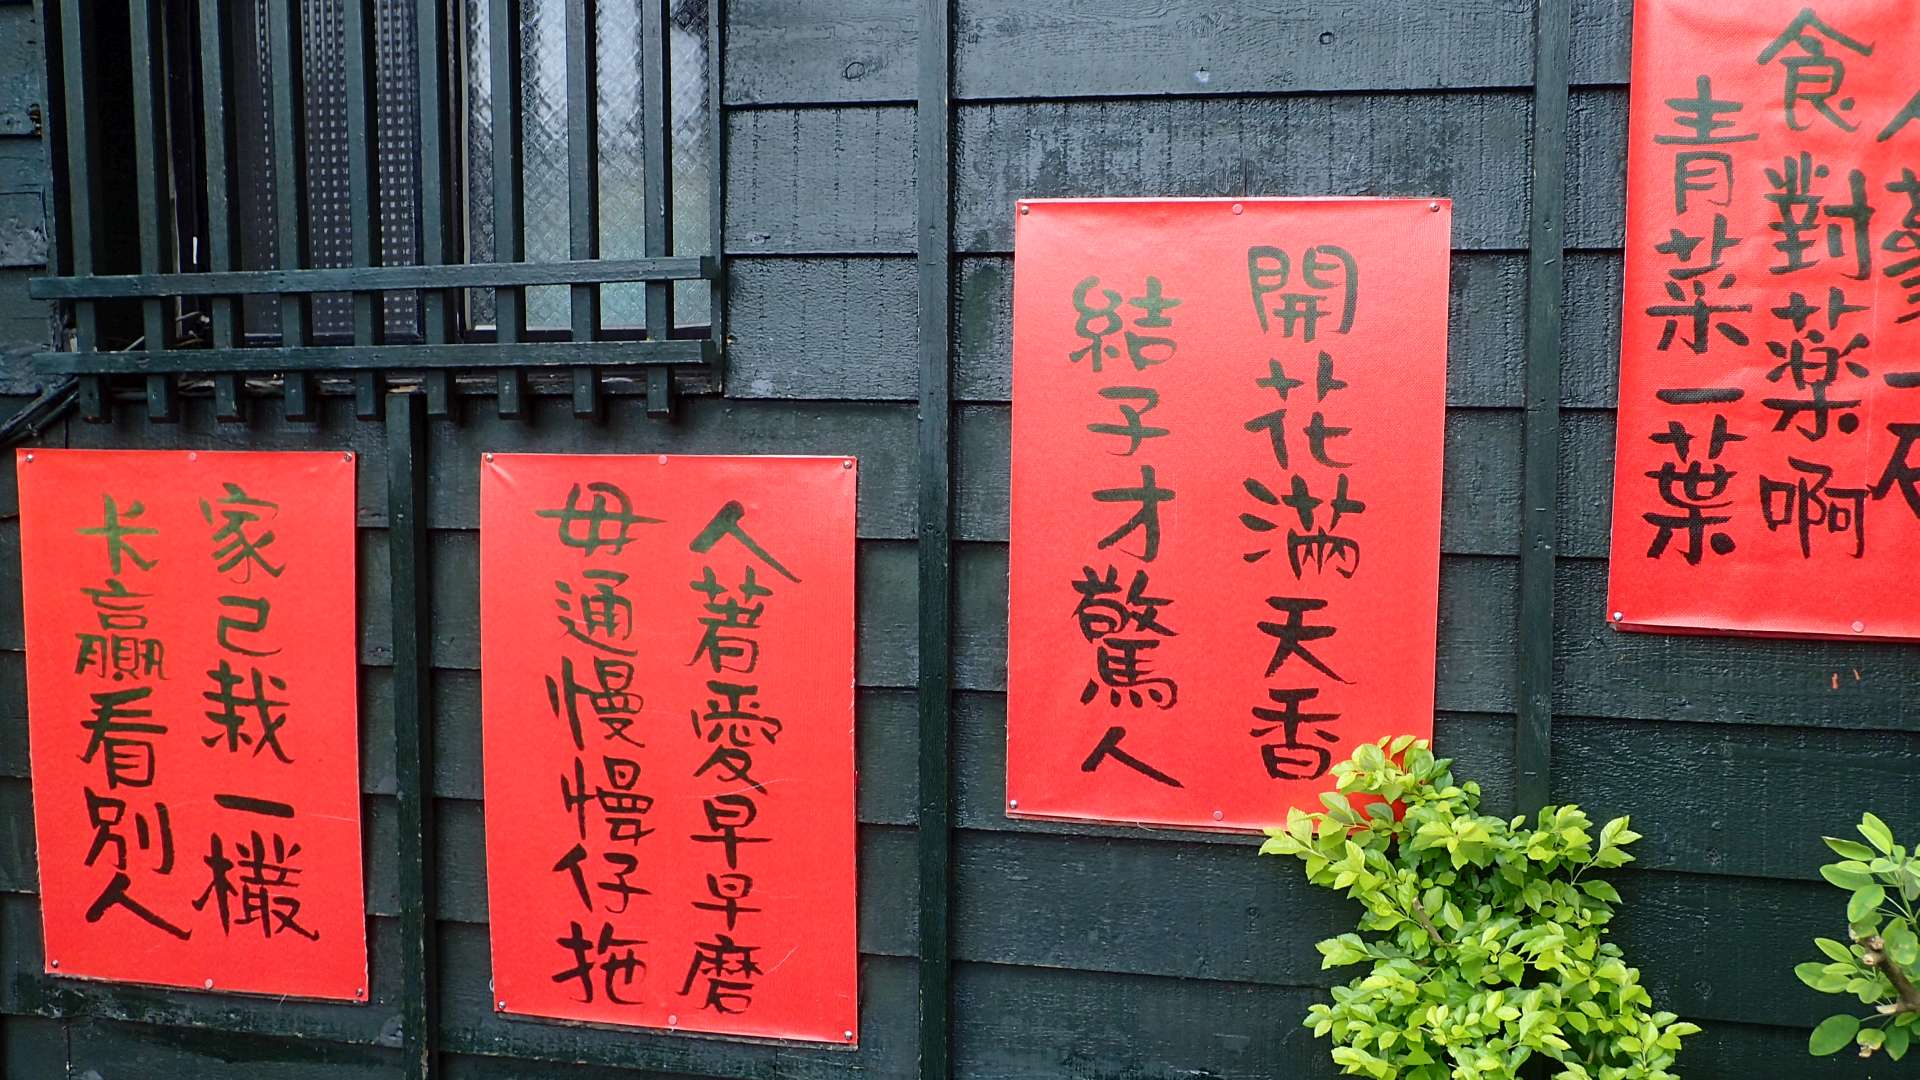 食對薬啊
青菜一葉
開花滿天香
結子才驚人
人著愛早早磨
毋通慢慢仔拖
家己栽一欉
卡贏看別人